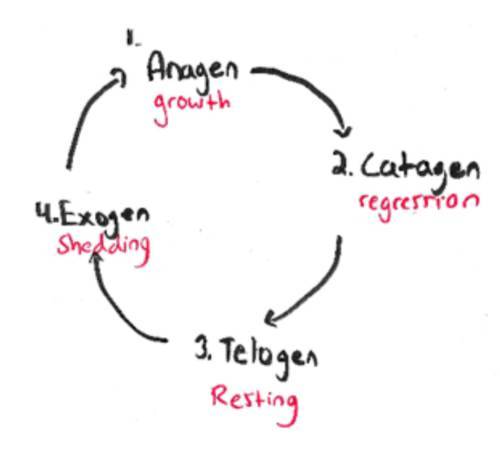 1.
Anagen
growth
2. Catagen
regression
3. Telogen
Resting
4. Exogen
Shedding